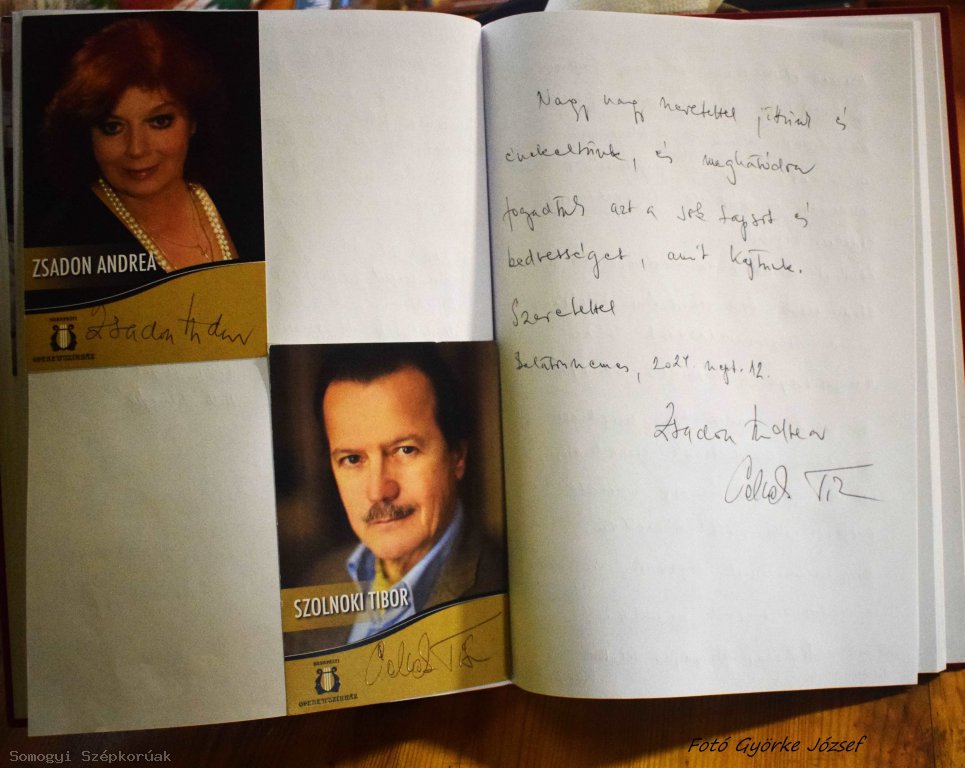 ZSADON ANDREA
BUDAPESTI
OPERETTSZÍNHÁZ
Zsadon Andrea
SZOLNOKI TIBOR
BUDAPESTI
OPERETTSZÍNHÁZ
Nagy nagy szeretettel jöttünk és
énekeltünk, és meghatódva
fogadtuk azt a sok tapsot és
kedvességet, amit kaptunk.
Szeretettel
Balatonlemes, 2021. szept. 12.
Zsadon Andrea
Somogyi Szépkorúak
Fotó Györke József